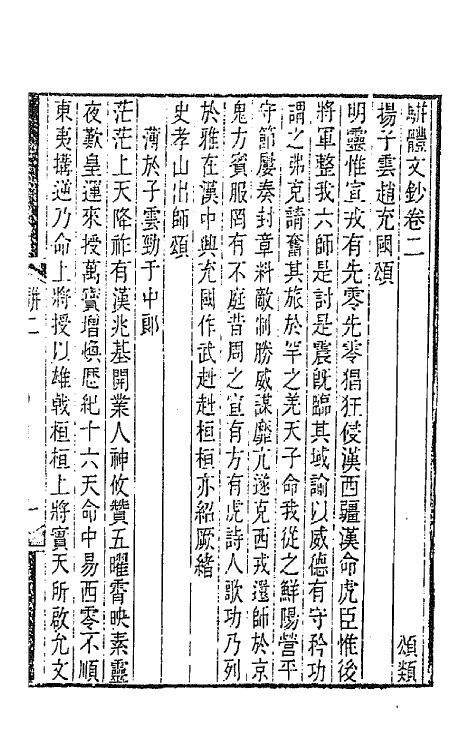 駢體文鈔卷二
頌類
揚子雲趙充國頌
明靈惟宣戎有先零先零猖狂侵漢西疆漢命虎臣惟後
將軍整我六師是討是震旣臨其域諭以威德有守矜功
謂之弗克請奮其旅於罕之羌天子命我從之鮮陽營平
守節屢奏封章料敵制勝威謀靡亢遂克西戎還師於京
鬼方賓服罔有不庭昔周之宣有方有虎詩人歌功乃列
於雅在漢中興充國作武赳赳桓桓亦紹厥緒
史孝山出師頌
薄於子雲勁于中郞
茫茫上天降祚有漢兆基開業人神攸贊五曜霄映素靈
夜歎皇運來授萬寶增煥歷紀十六天命中易西零不順
東夷搆逆乃命上將授以雄戟桓桓上將寔天所啟允文
駢二
一